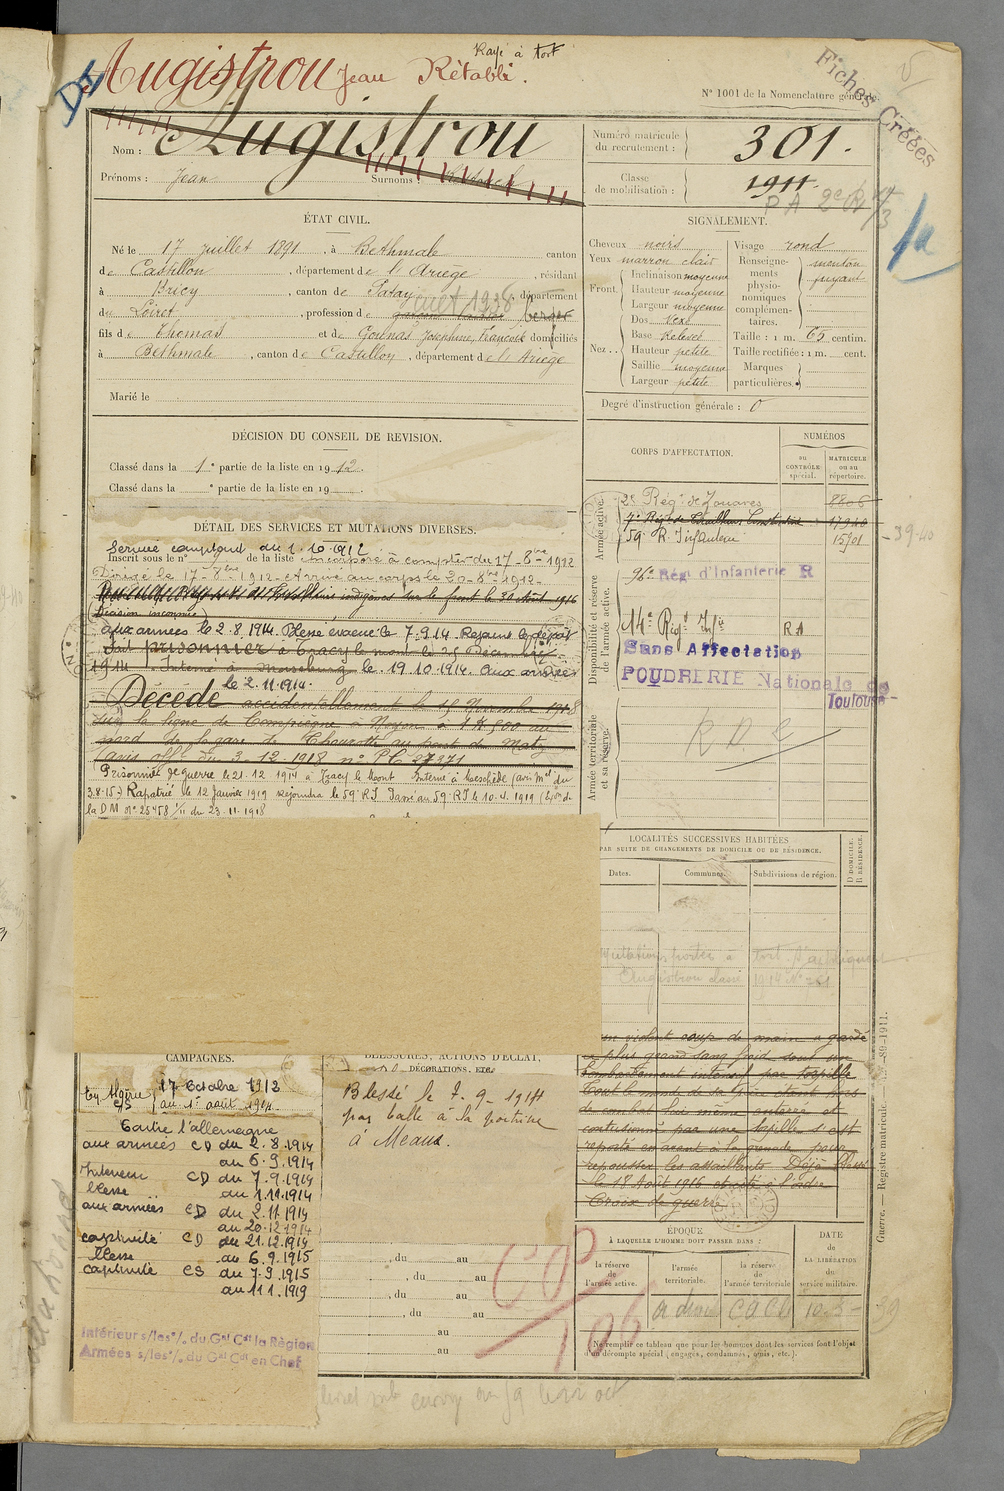 Rayé à tort
Augistrou Jean Rétabli.
Fiches Créées
N° 1001 de la Nomenclature
Nom : Augistrou
Prénoms : Jean Surnoms :
Numéro matricule du recrutement : 301.
Classe de mobilisation : 1911
ÉTAT CIVIL.
Né le 17 juillet 1891, à Bethmale canton
de Castillon, département de l'Ariège, résidant
à Bricy, canton de Patay, département
du Loiret, profession de berger
fils de Thomas et de Gounas Josephine, Françoise domiciliés
à Bethmale, canton de Castillon, département de l'Ariège
Marié le
SIGNALEMENT.
Cheveux noirs
Yeux marron clair
Front. Inclinaison moyenne
Hauteur moyenne
Largeur moyenne
Nez .. Dos vexe
Base relevée
Hauteur petite
Saillie moyenne
Largeur petite
Visage rond
Renseignements physionomiques complémentaires. menton fuyant
Taille : 1 m. 65 centim.
Taille rectifiée : 1 m. cent.
Marques particulières.
Degré d'instruction générale : 0
DÉCISION DU CONSEIL DE REVISION.
Classé dans la 1e partie de la liste en 1912.
Classé dans la e partie de la liste en 19
CORPS D'AFFECTATION.
NUMÉROS
au CONTRÔLE spécial.
MATRICULE ou au répertoire.
Armée active.
2e Régt de Zouaves 8806
7e Régt de Tirailleurs 17940
59e R. Infanterie 15701 - 39-40
Disponibilité et réserve de l'armée active.
96e Rég. d'Infanterie R
14e Régt Infie RA
Sans Affectation
POUDRERIE Nationale de Toulouse
Armée territoriale et sa réserve.
DÉTAIL DES SERVICES ET MUTATIONS DIVERSES.
Service comptant du 1.10.1912
Inscrit sous le n° de la liste incorporé à compter du 17-8bre 1912
Dirigé le 17-8bre 1912- Arrivé au corps le 20-8bre 1912-
sur le front le 30 Août 1916
Décision inconnue)
aux armées le 2.8.1914. Blessé évacué le 7.9.14. Rejoint le dépôt
fait prisonnier à Tracy le mont le 25 Décembre
1914. Interné à Merseburg le 19.10.1914. aux armées
le 2.11.1914.
Décédé accidentellement le 18 Novembre 1918
sur la ligne de Compiègne à Noyon à 1 K 500 au
nord de la gare de Thourotte au pont de Matz
(avis off. du 3-12-1918 n° PC 27371
Prisonnier de guerre le 21.12 1914 à Tracy le Mont Interné à Meschède (avis Mel du
3.8.15.) Rapatrié le 12 Janvier 1919 rejoindra le 59e R.I. Passé au 59e R.I. le 10.4.1919
la DM n° 25458 1/11 du 23.11.1918
LOCALITÉS SUCCESSIVES HABITÉES
PAR SUITE DE CHANGEMENTS DE DOMICILE OU DE RÉSIDENCE.
Dates. Communes. Subdivisions de région. D DOMICILE. R RÉSIDENCE.
Mutations portées à tort. S'appliquent
Augistrou classe 1914
un violent coup de main a gardé
le plus grand sang froid sous un
bombardement intensif par torpille
Tout le monde de sa pièce étant hors
de combat lui même enterré et
contusionné par une torpille s'est
reporté en avant à la grenade pour
repousser les assaillants. Déjà blessé
le 18 Août 1916 et cité à l'ordre
Croix de guerre
CAMPAGNES.
En Algérie 17 Octobre 1912
CS au 1er août 1914.
Contre l'allemagne
aux armées CD du 2.8.1914
au 6.9.1914
Intérieur CD du 7.9.1914
blessé du 1.11.1914
aux armées CD du 2.11.1914
au 20.12.1914
captivité CD du 21.12.1914
blessé au 6.9.1915
captivité CS du 7.9.1915
au 11.1.1919
Intérieur s/les °/. du Gal Cdt la Région
Armées s/les °/. du Gal Cdt en Chef
BLESSURES, ACTIONS D'ÉCLAT,
DÉCORATIONS, ETC.
Blessé le 7-9-1914
par balle à la poitrine
à Meaux.
, du au
, du au
, du au
, du au
au
au
ÉPOQUE
À LAQUELLE L'HOMME DOIT PASSER DANS :
la réserve de l'armée active.
l'armée territoriale.
la réserve de l'armée territoriale
DATE de LA LIBÉRATION du service militaire.
Ne remplir ce tableau que pour les hommes dont les services font l'objet
décompte spécial (engagés, condamnés, omis, etc.).
Guerre. — Registre matricule. —